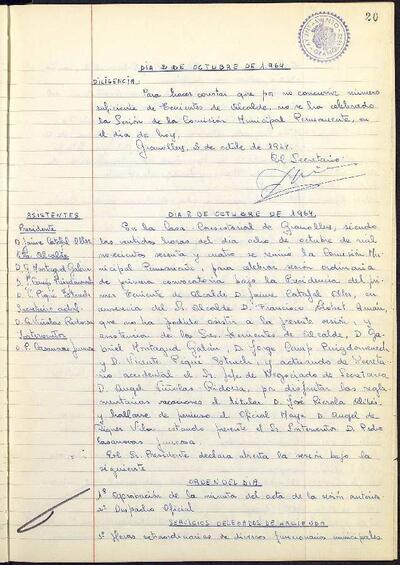 20
DIA 2 DE OCTUBRE DE 1964
DILIGENCIA:
Para hacer constar que por no concurrir número
suficiente de Tenientes de Alcalde, no se ha celebrado
la Sesión de la Comisión Municipal Permanente, en
el día de hoy.
Granollers, 2 octubre de 1964.
El Secretario
ASISTENTES
Presidente
D. Jaime
Tte. Alcalde
D. G. Montagud
D. J. Camp Puigdomenech
D. V. Piqué
Secretario acctal.
D. A. Viñolas Ridorsa
Interventor
D. P. Casanovas
DIA 8 DE OCTUBRE DE 1964.
En la Casa Consistorial de Granollers, siendo
las veintidós horas del día ocho de octubre de mil
novecientos sesenta y cuatro se reunió la Comisión Mu-
nicipal Permanente, para celebrar sesión ordinaria
de primera convocatoria bajo la Presidencia del pri-
mer Teniente de Alcalde D. Jaime, en
ausencia del Sr. Alcalde D. Francisco,
que no ha podido asistir a la presente sesión, y
asistencia de los Sres. Tenientes de Alcalde, D. Ga-
briel Montagud, D. Jorge Camp Puigdomenech
y D. Vicente Piqué y actuando de Secreta-
rio accidental el Sr. Jefe de Negociado de Secretaría
D. Angel Viñolas Ridorsa, por disfrutar las regla-
mentarias vacaciones el titular D. José
y hallarse de permiso el Oficial Mayor D. Angel de
Riquer Vila estando presente el Sr. Interventor D. Pedro
Casanovas
El Sr. Presidente declara abierta la sesión bajo la
siguiente
ORDEN DEL DIA
1º Aprobación de la minuta del acta de la sesión anterior.
2º Despacho Oficial
SERVICIOS DELEGADOS DE HACIENDA
3º Horas extraordinarias de diversos funcionarios municipales